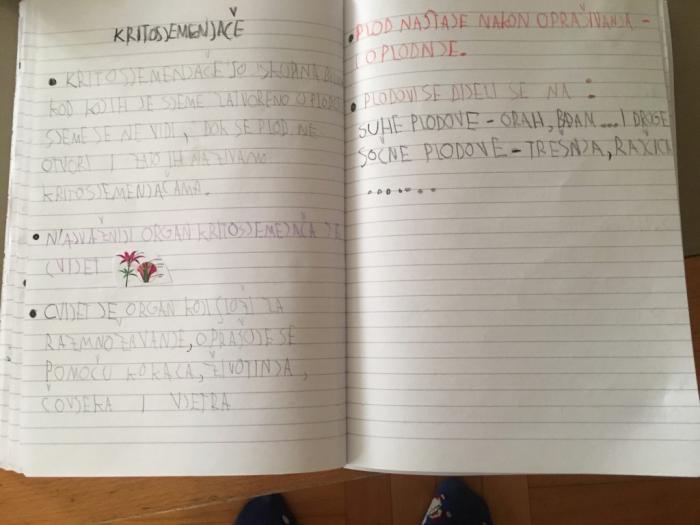 KRITOSJEMENJAČE
• KRITOSJEMENJAČE SO SKUPINA
KOD KOJIH JE SJEME ZATVORENO O PLODO
SJEME SE NE VIDI, DOK SE PLOD NE
OTVORI I ZATO IH NAZIVAMO
KRITOSJEMENJAČAMA.
• NAJVAŽNIJI ORGAN KRITOSJEMEJAČA JE
CVIJET
• CVIJET JE ORGAN KOJI SLOŽI ZA
RAZMNOŽAVANJE, OPRAŠUJE SE
POMOĆU KOKACA, ŽIVOTINJA,
ČOVJEKA I VJETRA
• PLOD NASTAJE NAKON OPRAŠIVANJA -
I OPLODNJE.
• PLODOVI SE DIJELI SE NA :
SUHE PLODOVE - ORAH, BDAN....I DRUGE
SOČNE PLODOVE - TREŠNJA, RAŽICA
.......